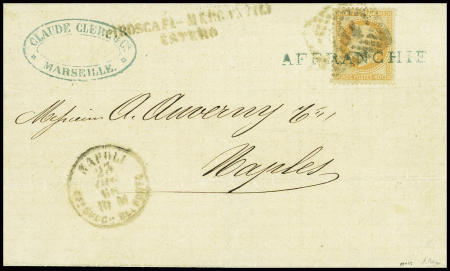 CLAUDE CLERC & Cie
MARSEILLE.
PIROSCAFI-MERCANTILI
ESTERO
AFFRANCHIE
Messieurs A. Auverny &
Naples
NAPOLI
68
10 M